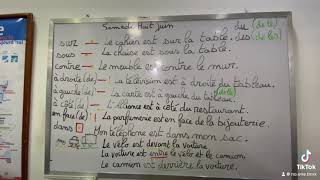 Samedi Huit juin
du (de le)
sur – Le cahier est sur la table. des (de les)
sous – La chaise est sous la table.
contre – Le meuble est contre le mur.
à droite (de) – La télévision est à droite du tableau.
à gauche (de) – La carte est à gauche du tableau. (de le)
à côté (de) – L'Alliance est à côté du restaurant.
en face (de) – La parfumerie est en face de la bijouterie.
dans – Mon téléphone est dans mon sac.
Le vélo est devant la voiture
La voiture est entre le vélo et le camion
Le camion est derrière la voiture.
TikTok